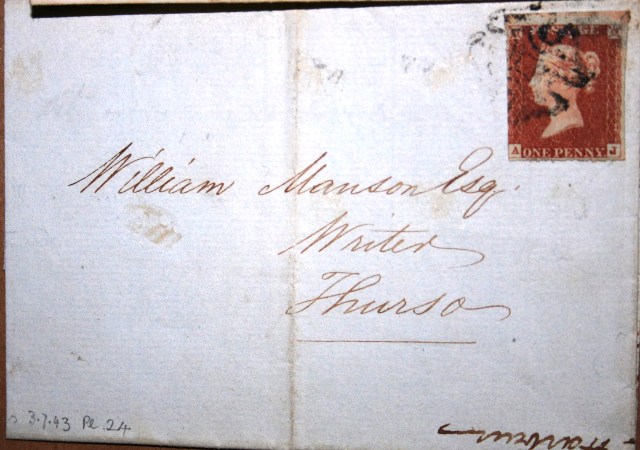 POSTAGE
A J
ONE PENNY
William Manson Esq.
Writer
Thurso
3.7.43 Pl. 24